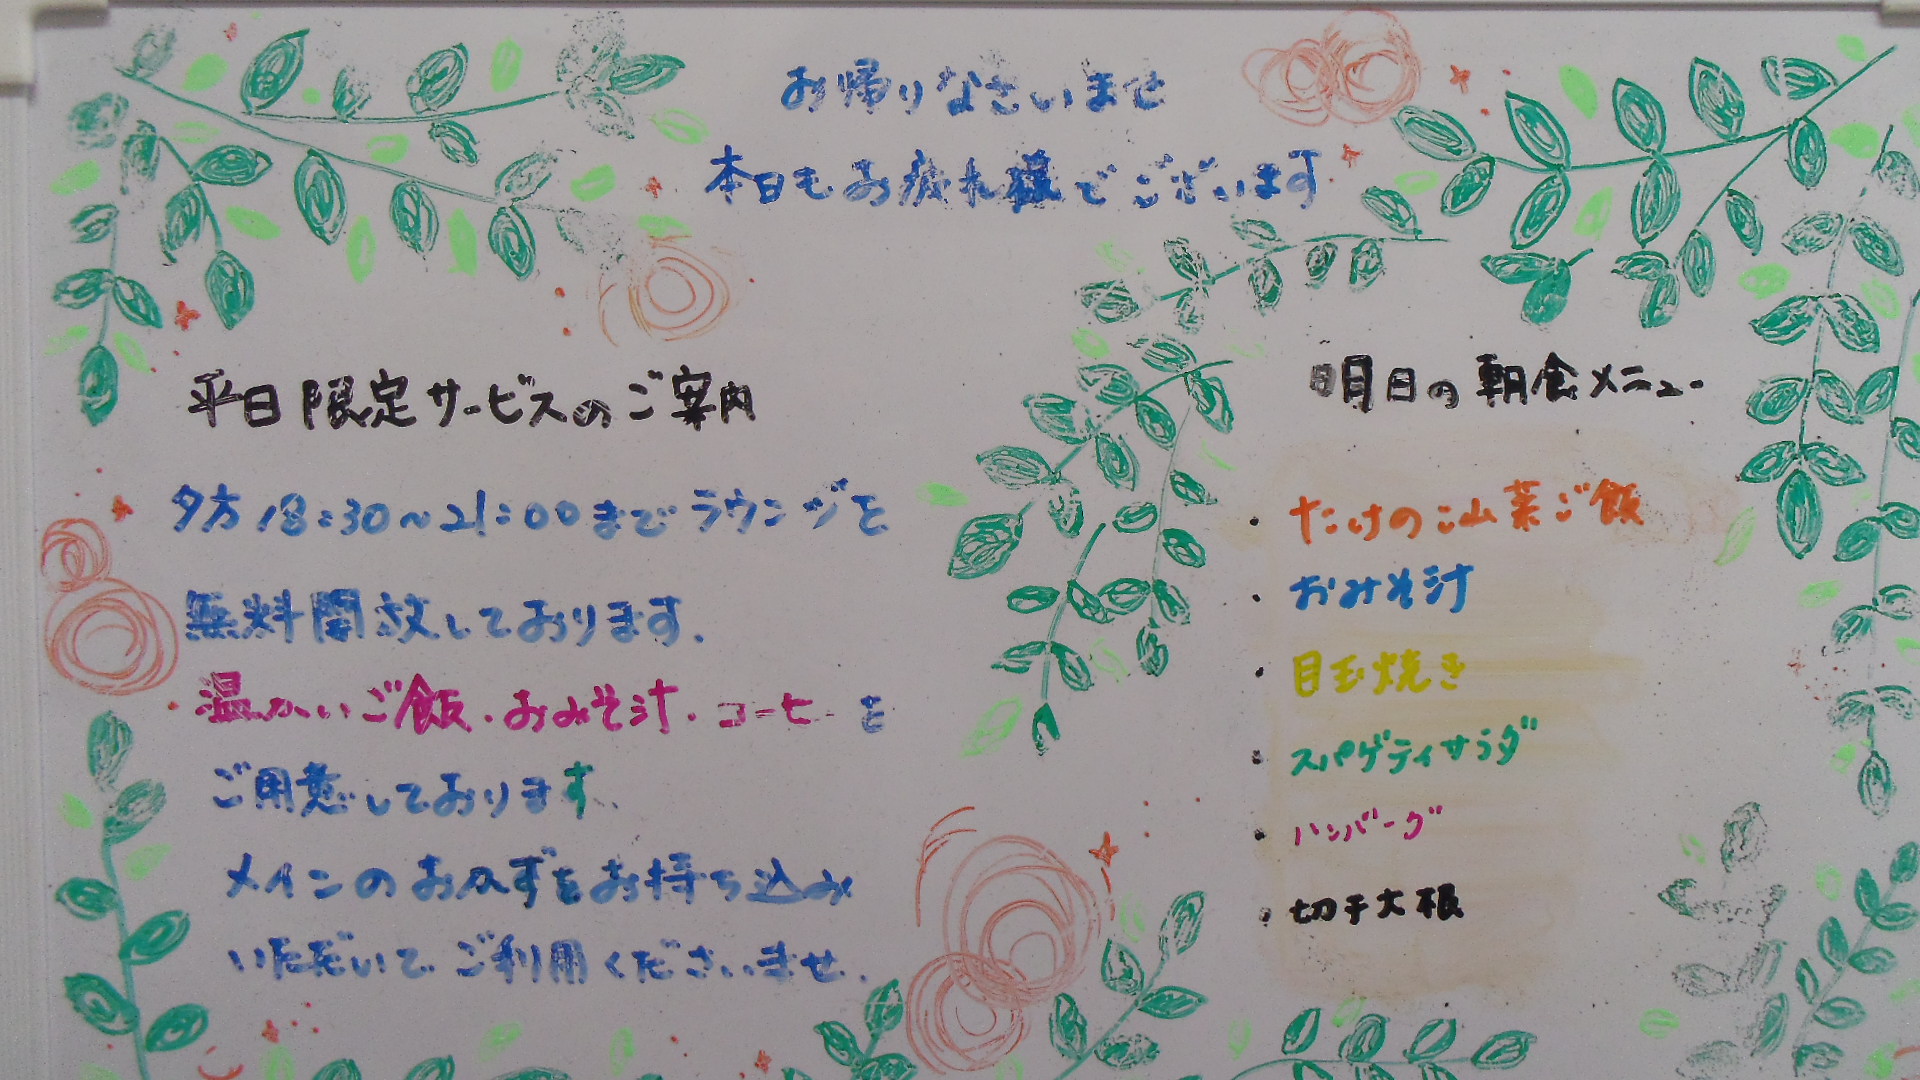 お帰りなさいませ
本日もお疲れ様でございます
平日限定サービスのご案内
夕方18:30～21:00までラウンジを
無料開放しております.
温かいご飯・おみそ汁・コーヒーを
ご用意しております.
メインのおかずをお持ち込み
いただいてご利用くださいませ.
明日の朝食メニュー
・たけのこ山菜ご飯
・おみそ汁
・目玉焼き
・スパゲティサラダ
・ハンバーグ
・切干大根